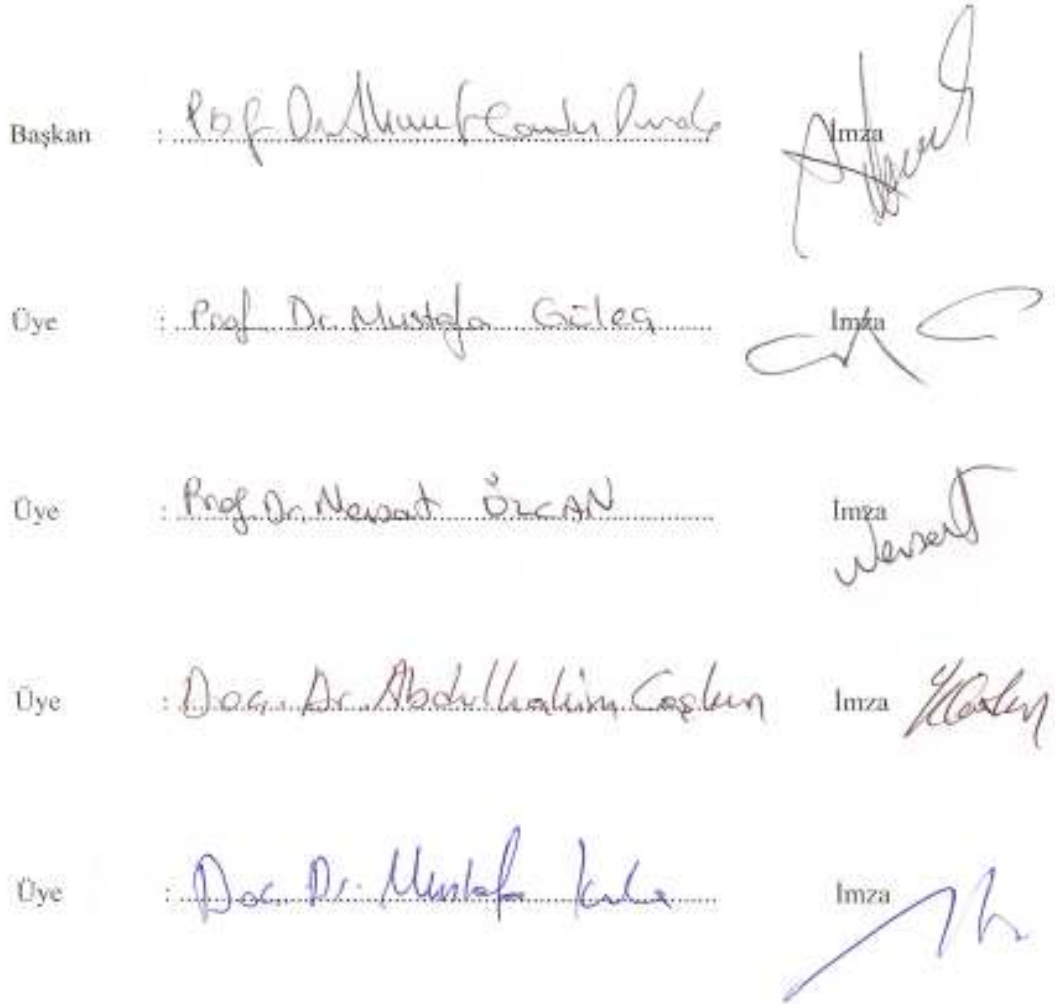 Başkan : Prof Dr. İmza
Üye : Prof. Dr. Mustafa Güleç İmza
Üye : Prof. Dr. Nevzat ÖZCAN İmza
Üye : Doç. Dr. Abdulhalim Coşkun İmza
Üye : Doç. Dr. Mustafa İmza